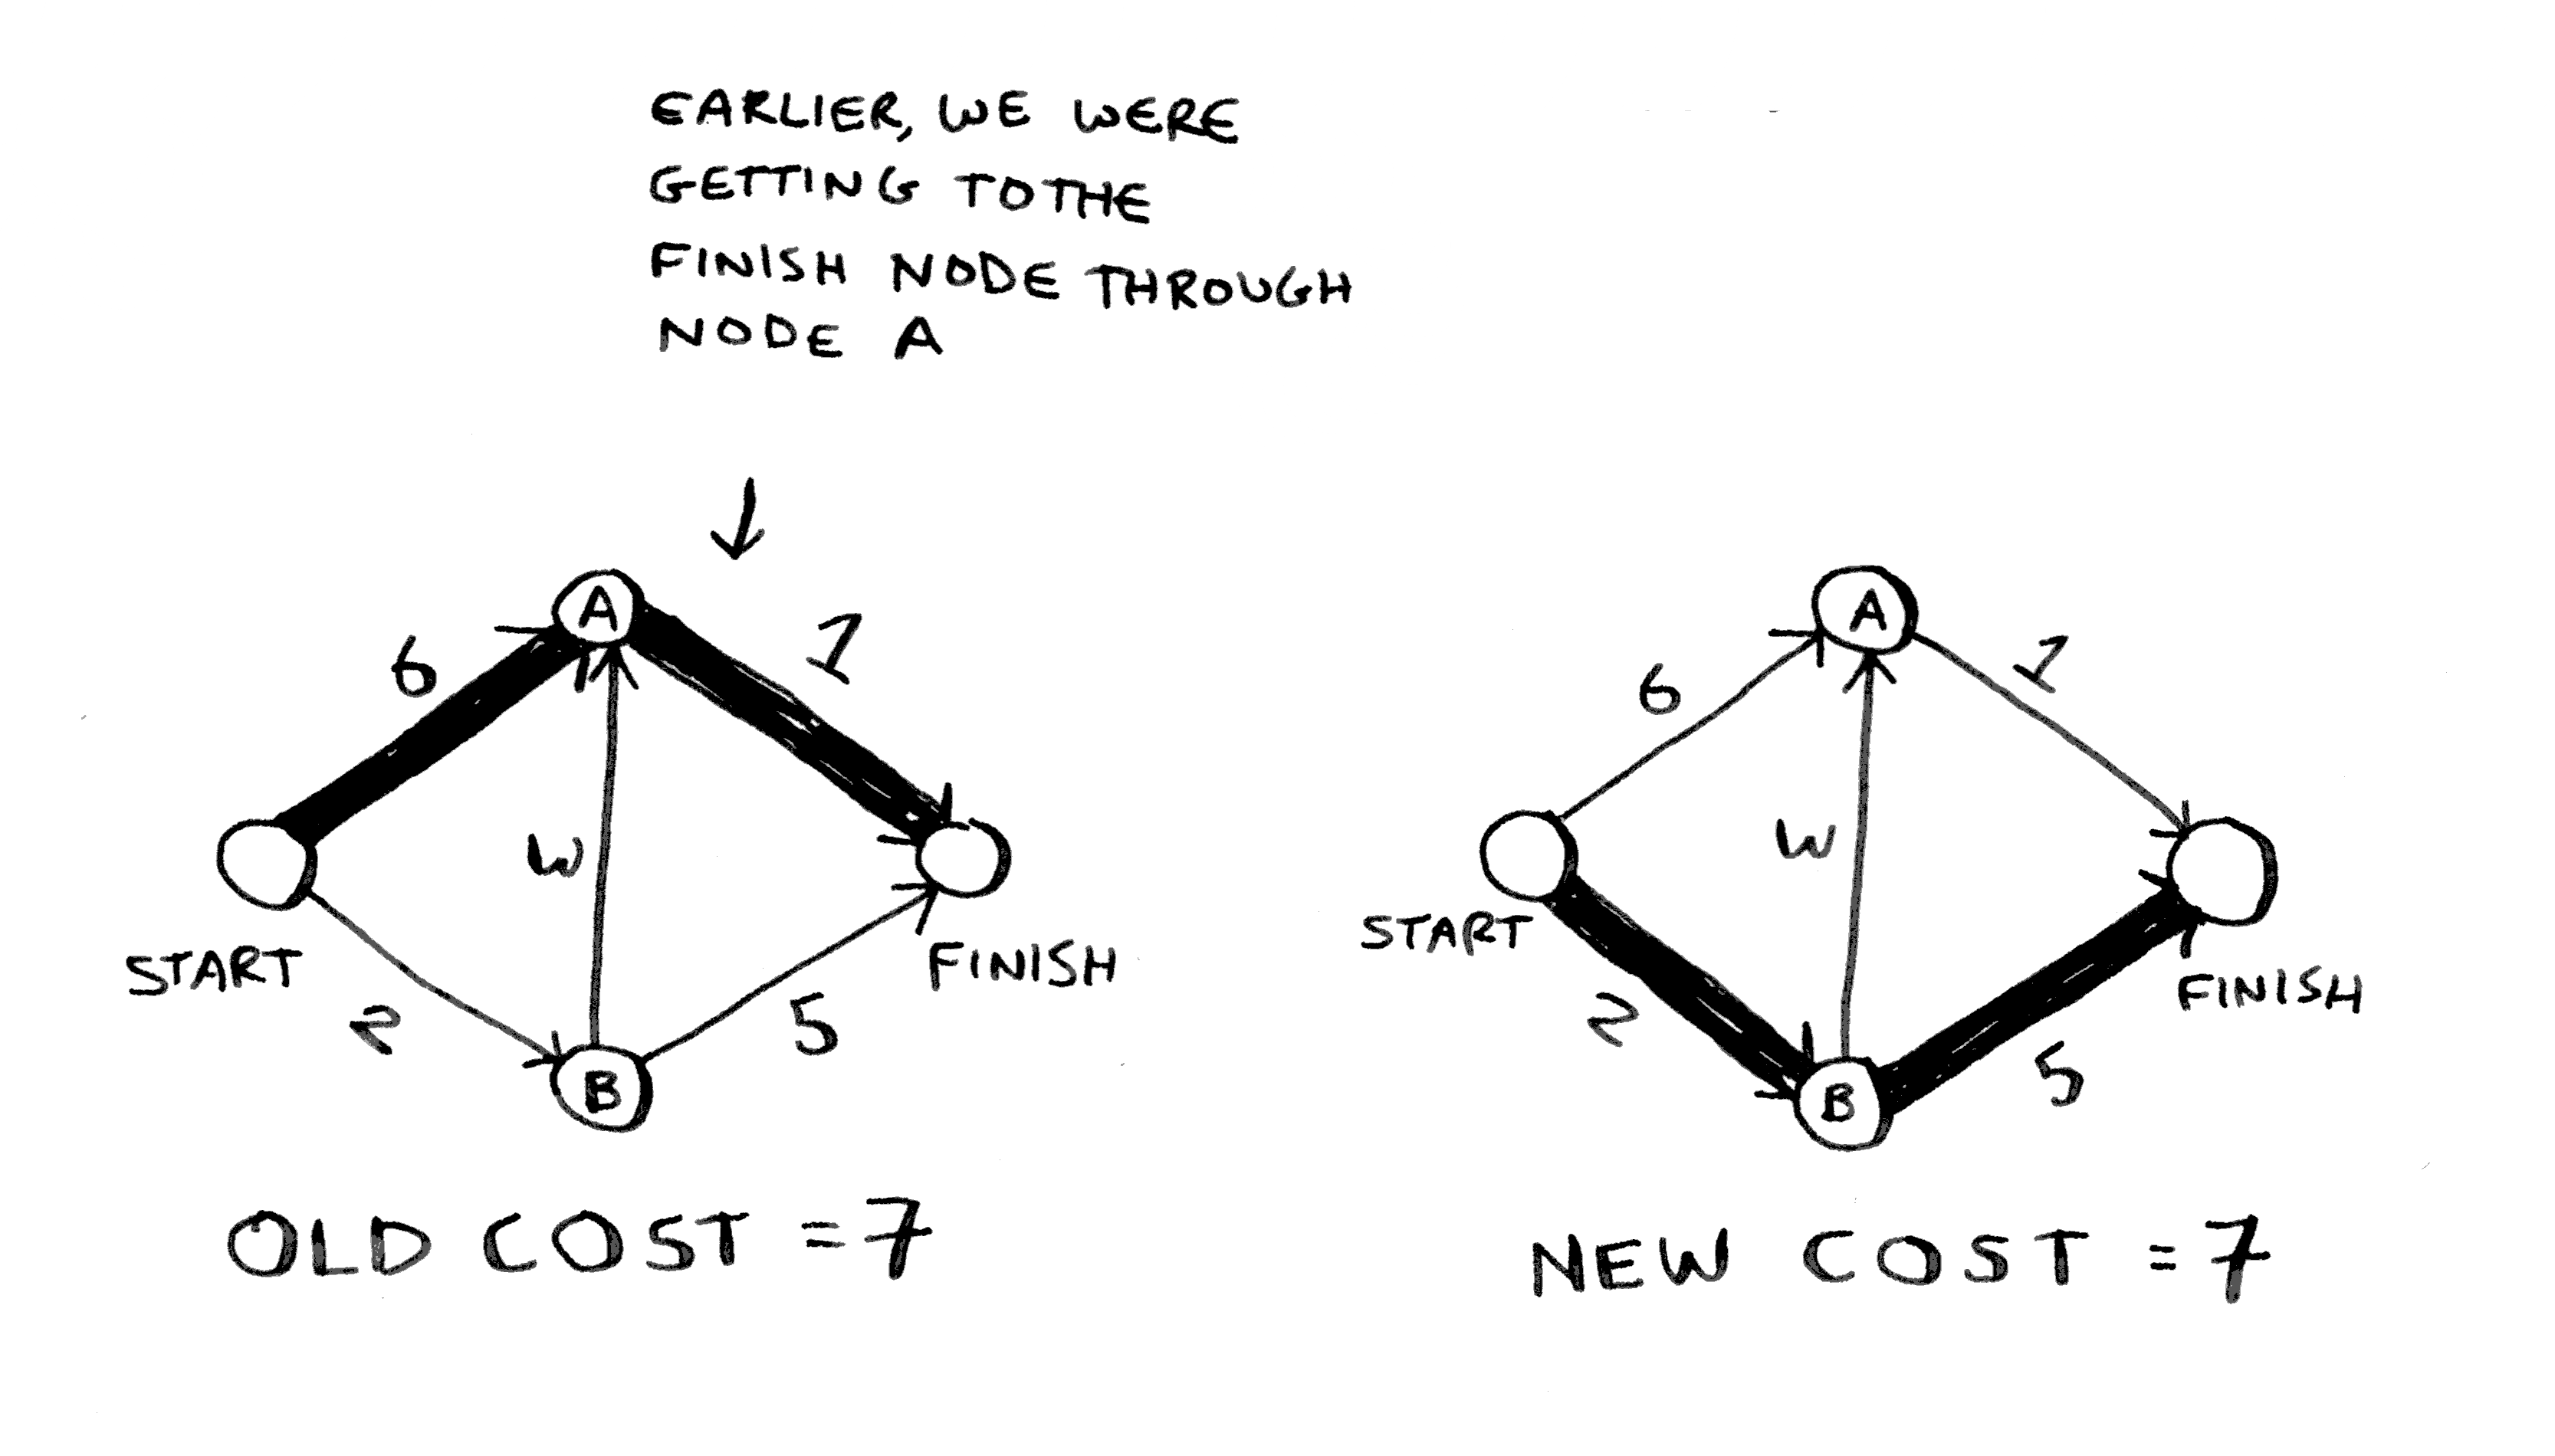 EARLIER, WE WERE
GETTING TO THE
FINISH NODE THROUGH
NODE A
A
6
1
W
START
FINISH
2
5
B
OLD COST = 7
A
6
1
W
START
FINISH
2
5
B
NEW COST = 7